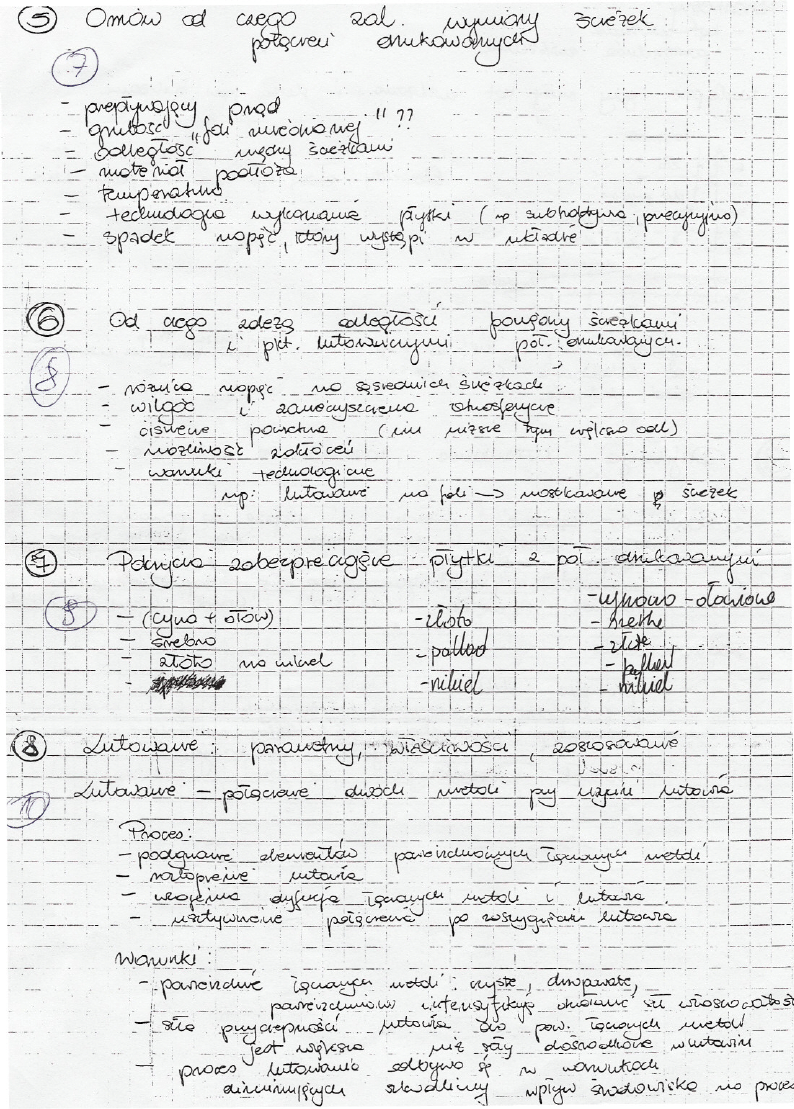 5 Omów od czego zal. wymiary ścieżek
połączeń drukowanych
7
- przepływający prąd
- grubość "foli miedzianej" ??
- odległość między ścieżkami
- materiał podłoża
- temperatura
- technologia wykonania płytki (np subtraktywna, precyzyjna)
- spadek napięć, który wystąpi w układzie
6 Od czego zależą odległości pomiędzy ścieżkami
i pkt. lutowniczymi poł. drukowanych.
- różnica napięć na sąsiednich ścieżkach
- wilgoć i zanieczyszczenia atmosferyczne
- ciśnienie powietrza (im niższe tym większa odl)
- możliwość zakłóceń
- warunki technologiczne
np: lutowanie na fali -> mostkowanie ścieżek
7 Pokrycia zabezpieczające płytki z poł. drukowanymi
8
- (cyna + ołów) - złoto - cynowo - ołowiowe
- srebro - pallad - srebro
- złoto na nikiel - nikiel - złote
- pallad
- nikiel
8 Lutowanie: parametry, właściwości, zastosowanie
10
Lutowanie - połączenie dwóch metali przy użyciu lutowia
Proces:
- podgrzanie elementów powierzchniowych łączonych metali
- roztopienie lutowia
- wzajemna dyfuzja łączonych metali i lutowia
- usztywnienie połączenia po zastygnięciu lutowia
Warunki:
- powierzchnie łączonych metali: czyste, chropowate,
powierzchniowo intensyfikuje działanie sił włoskowatości
- siła przyczepności lutowia do pow. łączonych metali
jest większa niż siły dośrodkowe w lutowiu
- proces lutowania odbywa się w warunkach
eliminujących szkodliwy wpływ środowiska na proces